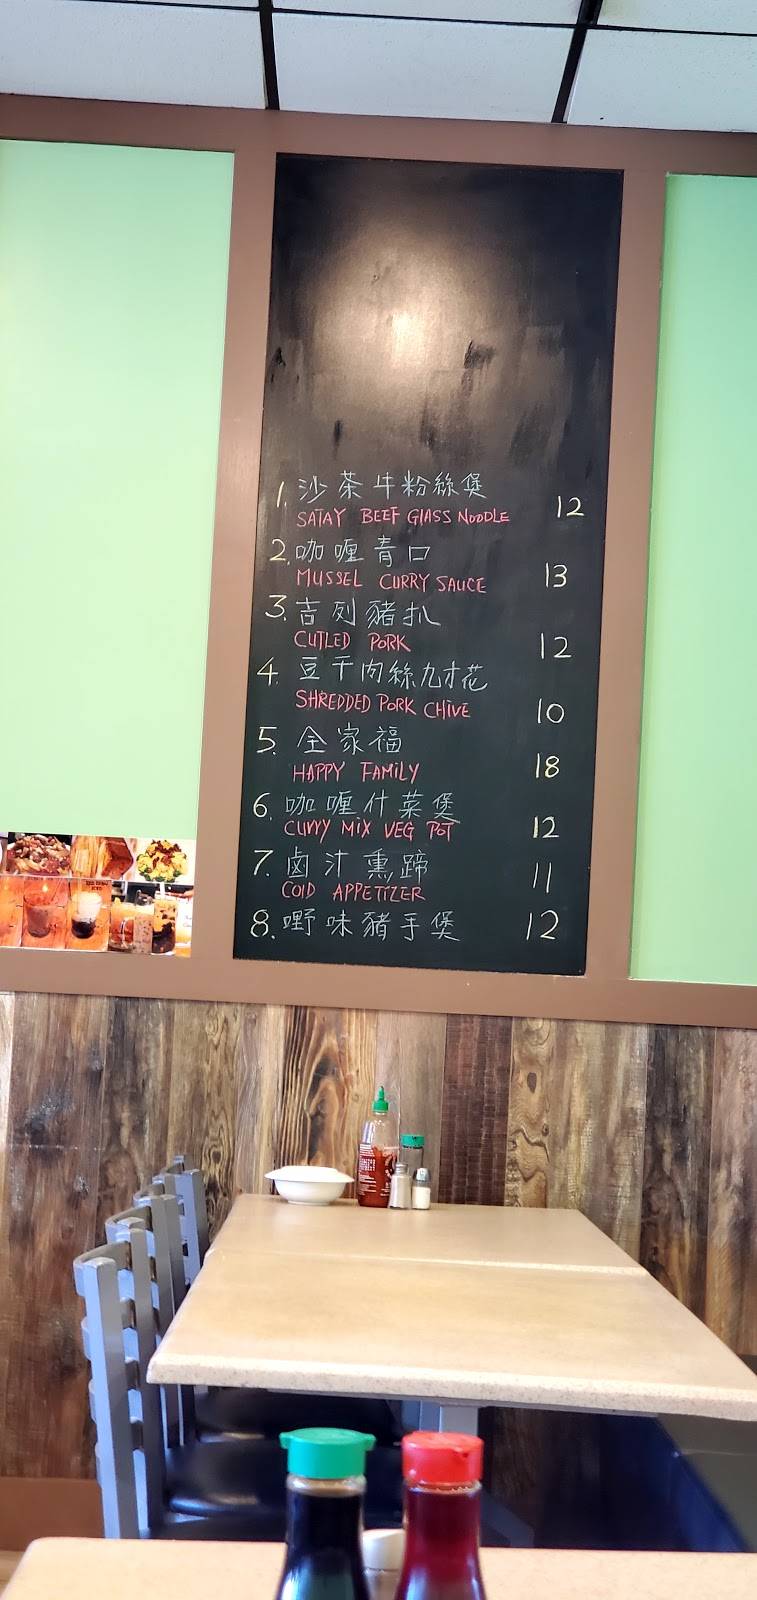 1. 沙茶牛粉絲煲 12
SATAY BEEF GLASS NOODLE
2. 咖喱青口 13
MUSSEL CURRY SAUCE
3. 吉列豬扒 12
CUTLED PORK
4. 豆干肉絲九才花 10
SHREDDED PORK CHIVE
5. 全家福 18
HAPPY FAMILY
6. 咖喱什菜煲 12
CURRY MIX VEG POT
7. 鹵汁熏蹄 11
COLD APPETIZER
8. 嘢味豬手煲 12